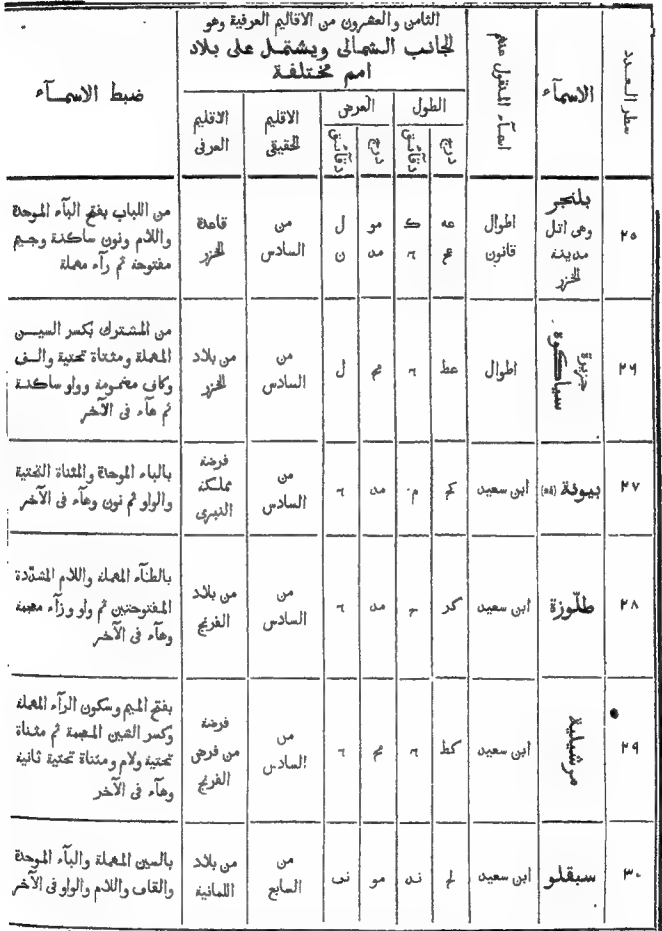 الثامن والعشرون من الاقاليم العرفية وهو
الجانب الشمالى ويشتمل على بلاد
امم مختلفة
سطر العدد
الاسمآء
اسمآء المنقول عنهم
الطول
العرض
درج
دقآئق
درج
دقآئق
الاقليم
الحقيقى
الاقليم
العرفى
ضبط الاسمـآء
٢٥
بلنجر
وهى اتل
مدينة
الخزر
اطوال
قانون
عه ك مو ل
مد ن
من
السادس
قاعدة
الخزر
من اللباب بفتح البآء الموحدة
واللام ونون ساكنة وجيم
مفتوحة ثم رآء مهملة
٢٦
جزيرة
سياكوة
اطوال
عط ل
من
السادس
من بلاد
الخزر
من المشترك بكسر السيـن
المهملة ومثناة تحتية والـف
وكاف مضمومة وواو ساكنة
ثم هآء فى الآخر
٢٧
بيونة
ابن سعيد
مد
من
السادس
فرضة
مملكة
النبرى
بالباء الموحدة والمثناة التحتية
والواو ثم نون وهآء فى الآخر
٢٨
طلّوزة
ابن سعيد
كر مد
من
السادس
من بلاد
الفرنج
بالطآء المهملة واللام المشدّدة
المفتوحتين ثم واو وزآء معجمة
وهآء فى الآخر
٢٩
مرشيلية
ابن سعيد
كط
من
السادس
فرضة
من فرض
الفرنج
بفتح الميم وسكون الرآء المهملة
وكسر الشين المعجمة ثم مثناة
تحتية ولام ومثناة تحتية ثانية
وهآء فى الآخر
٣٠
سبقلو
ابن سعيد
ند مو نب
من
السابع
من بلاد
اللمانية
بالسين المهملة والبآء الموحدة
والقاف واللام والواو فى الآخر